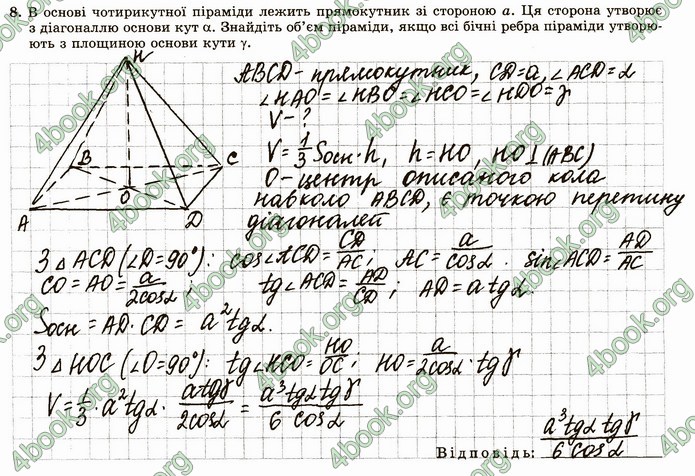 8. В основі чотирикутної піраміди лежить прямокутник зі стороною a. Ця сторона утворює
з діагоналлю основи кут α. Знайдіть об'єм піраміди, якщо всі бічні ребра піраміди утворю-
ють з площиною основи кути γ.
H
B
C
O
A
D
ABCD - прямокутник, CD=a, ∠ACD=α
∠HAO=∠HBO=∠HCO=∠HDO=γ
V-?
V=1/3 Sосн·h, h=HO, HO⊥(ABC)
O-центр описаного кола
навколо ABCD, є точкою перетину
діагоналей
З △ACD (∠D=90°): cos∠ACD=CD/AC; AC=a/cosα. sin∠ACD=AD/AC
CO=AO=a/2cosα; tg∠ACD=AD/CD; AD=a tgα.
Sосн=AD·CD=a²tgα.
З △HOC (∠O=90°): tg∠HCO=HO/OC; HO=a/2cosα·tgγ
V=1/3·a²tgα·atgγ/2cosα=a³tgα tgγ/6cosα
Відповідь: a³tgα tgγ/6cosα
4book.org